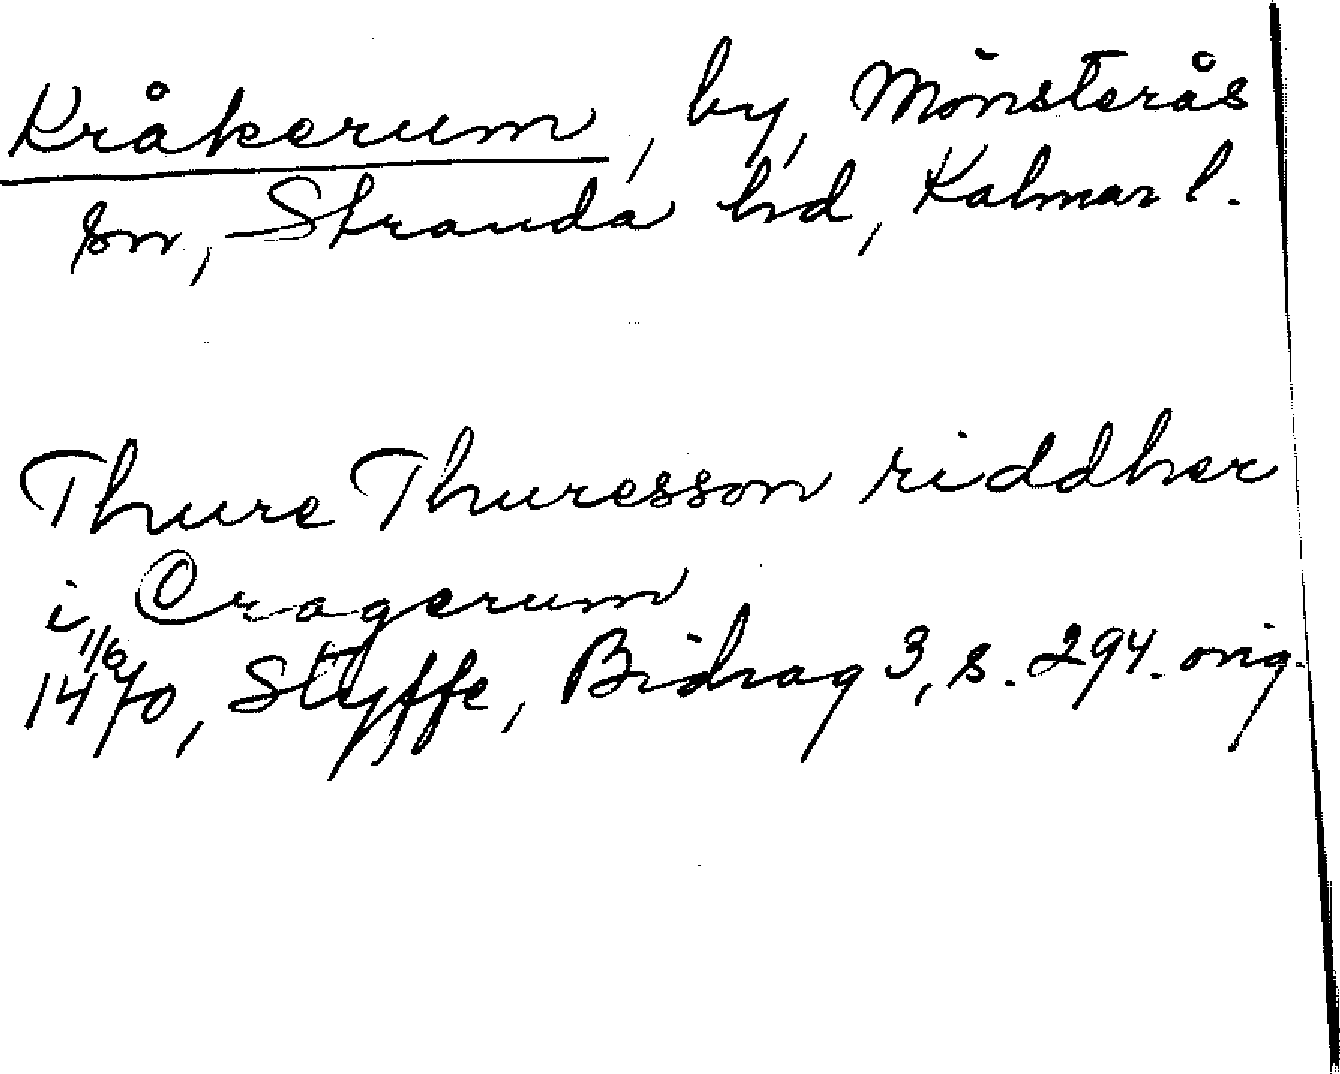 Kråkerum, by, Mönsterås
sn, Stranda hd, Kalmar l.
Thure Thuresson riddher
i Cragerum
1/6 1470, Styffe, Bidrag 3, s. 294. orig.